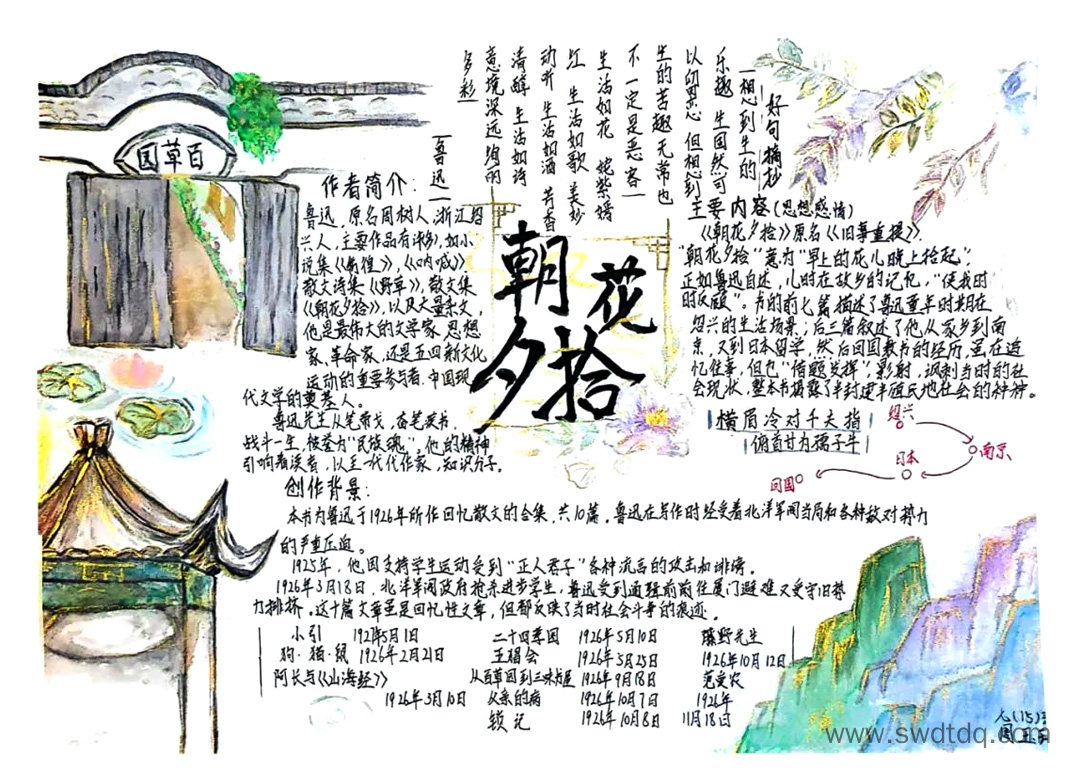 百草园
好句摘抄
一想到生的
乐趣 生固然可
以留恋 但想到
生的苦趣无常也
不一定是恶客一
生活如花 姹紫嫣
红 生活如歌 美妙
动听 生活如酒 芳香
清醇 生活如诗
意境深远 绚丽
多彩
一鲁迅一
朝花
夕拾
作者简介:
鲁迅,原名周树人,浙江绍
兴人,主要作品有诸多,如小
说集《彷徨》,《呐喊》
散文诗集《野草》,散文集
《朝花夕拾》,以及大量杂文,
他是最伟大的文学家 思想
家、革命家,还是五四新文化
运动的重要参与者.中国现
代文学的奠基人。
鲁迅先生从笔带戈,奋笔疾书,
战斗一生,被誉为“民族魂”。他的精神
引响着读者,以至一代代作家,知识分子。
主要内容(思想感情)
《朝花夕拾》原名《旧事重提》,
“朝花夕拾”意为“早上的花儿晚上拾起”;
正如鲁迅自述,儿时在故乡的记忆,“使我时
时反顾”。书的前七篇描述了鲁迅童年时期在
绍兴的生活场景;后三篇叙述了他从家乡到南
京,又到日本留学,然后回国教书的经历,虽在追
忆往事,但也“借题发挥”,影射,讽刺当时的社
会现状.整本书揭露了半封建半殖民地社会的种种.
横眉冷对千夫指
俯首甘为孺子牛
绍兴
南京
日本
回国
创作背景:
本书为鲁迅于1926年所作回忆散文的合集,共10篇。鲁迅在写作时经受着北洋军阀当局和各种敌对势力
的严重压迫。
1925年,他因支持学生运动受到“正人君子”各种流言的攻击和诽谤。
1926年3月18日,北洋军阀政府枪杀进步学生,鲁迅受到通缉前前往厦门避难又受守旧势
力排挤。这十篇文章虽是回忆性文章,但都反映了当时社会斗争的痕迹.
小引 1927年5月1日
狗·猫·鼠 1926年2月21日
阿长与《山海经》
1926年3月10日
二十四孝图 1926年5月10日
五猖会 1926年5月25日
从百草园到三味书屋 1926年9月18日
父亲的病 1926年10月7日
锁记 1926年10月8日
藤野先生
1926年10月12日
范爱农
1926年
11月18日
www.swdtdq.com